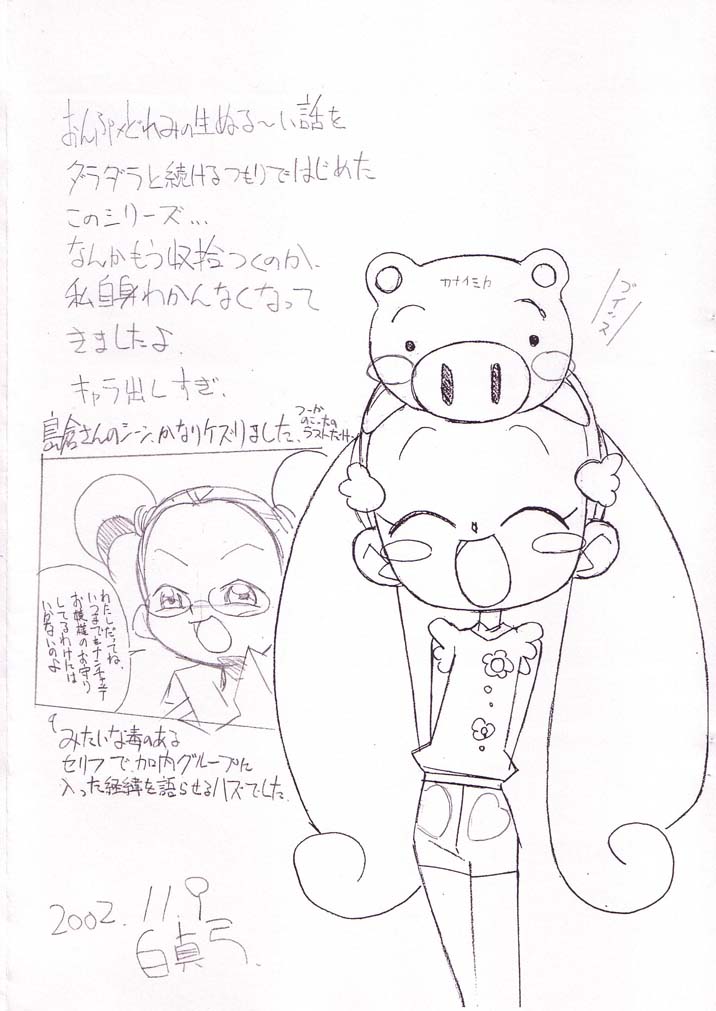 おんぷ×どれみの生ぬる〜い話を
ダラダラと続けるつもりではじめた
このシリーズ...
なんかもう収拾つくのか、
私自身わかんなくなって
きましたよ.
キャラ出しすぎ.
島倉さんのシーン、かなりケズりました.
つーか
のこったの
ラストだけ..
カナイミカ
ブイッス
わたしだってね、
いつまでもナンチャッテ
お嬢様のお守り
してるわけには
いかないのよ
みたいな毒のある
セリフで、加内グループに
入った経緯を語らせるハズでした.
2002. 11. 9
白真弓.